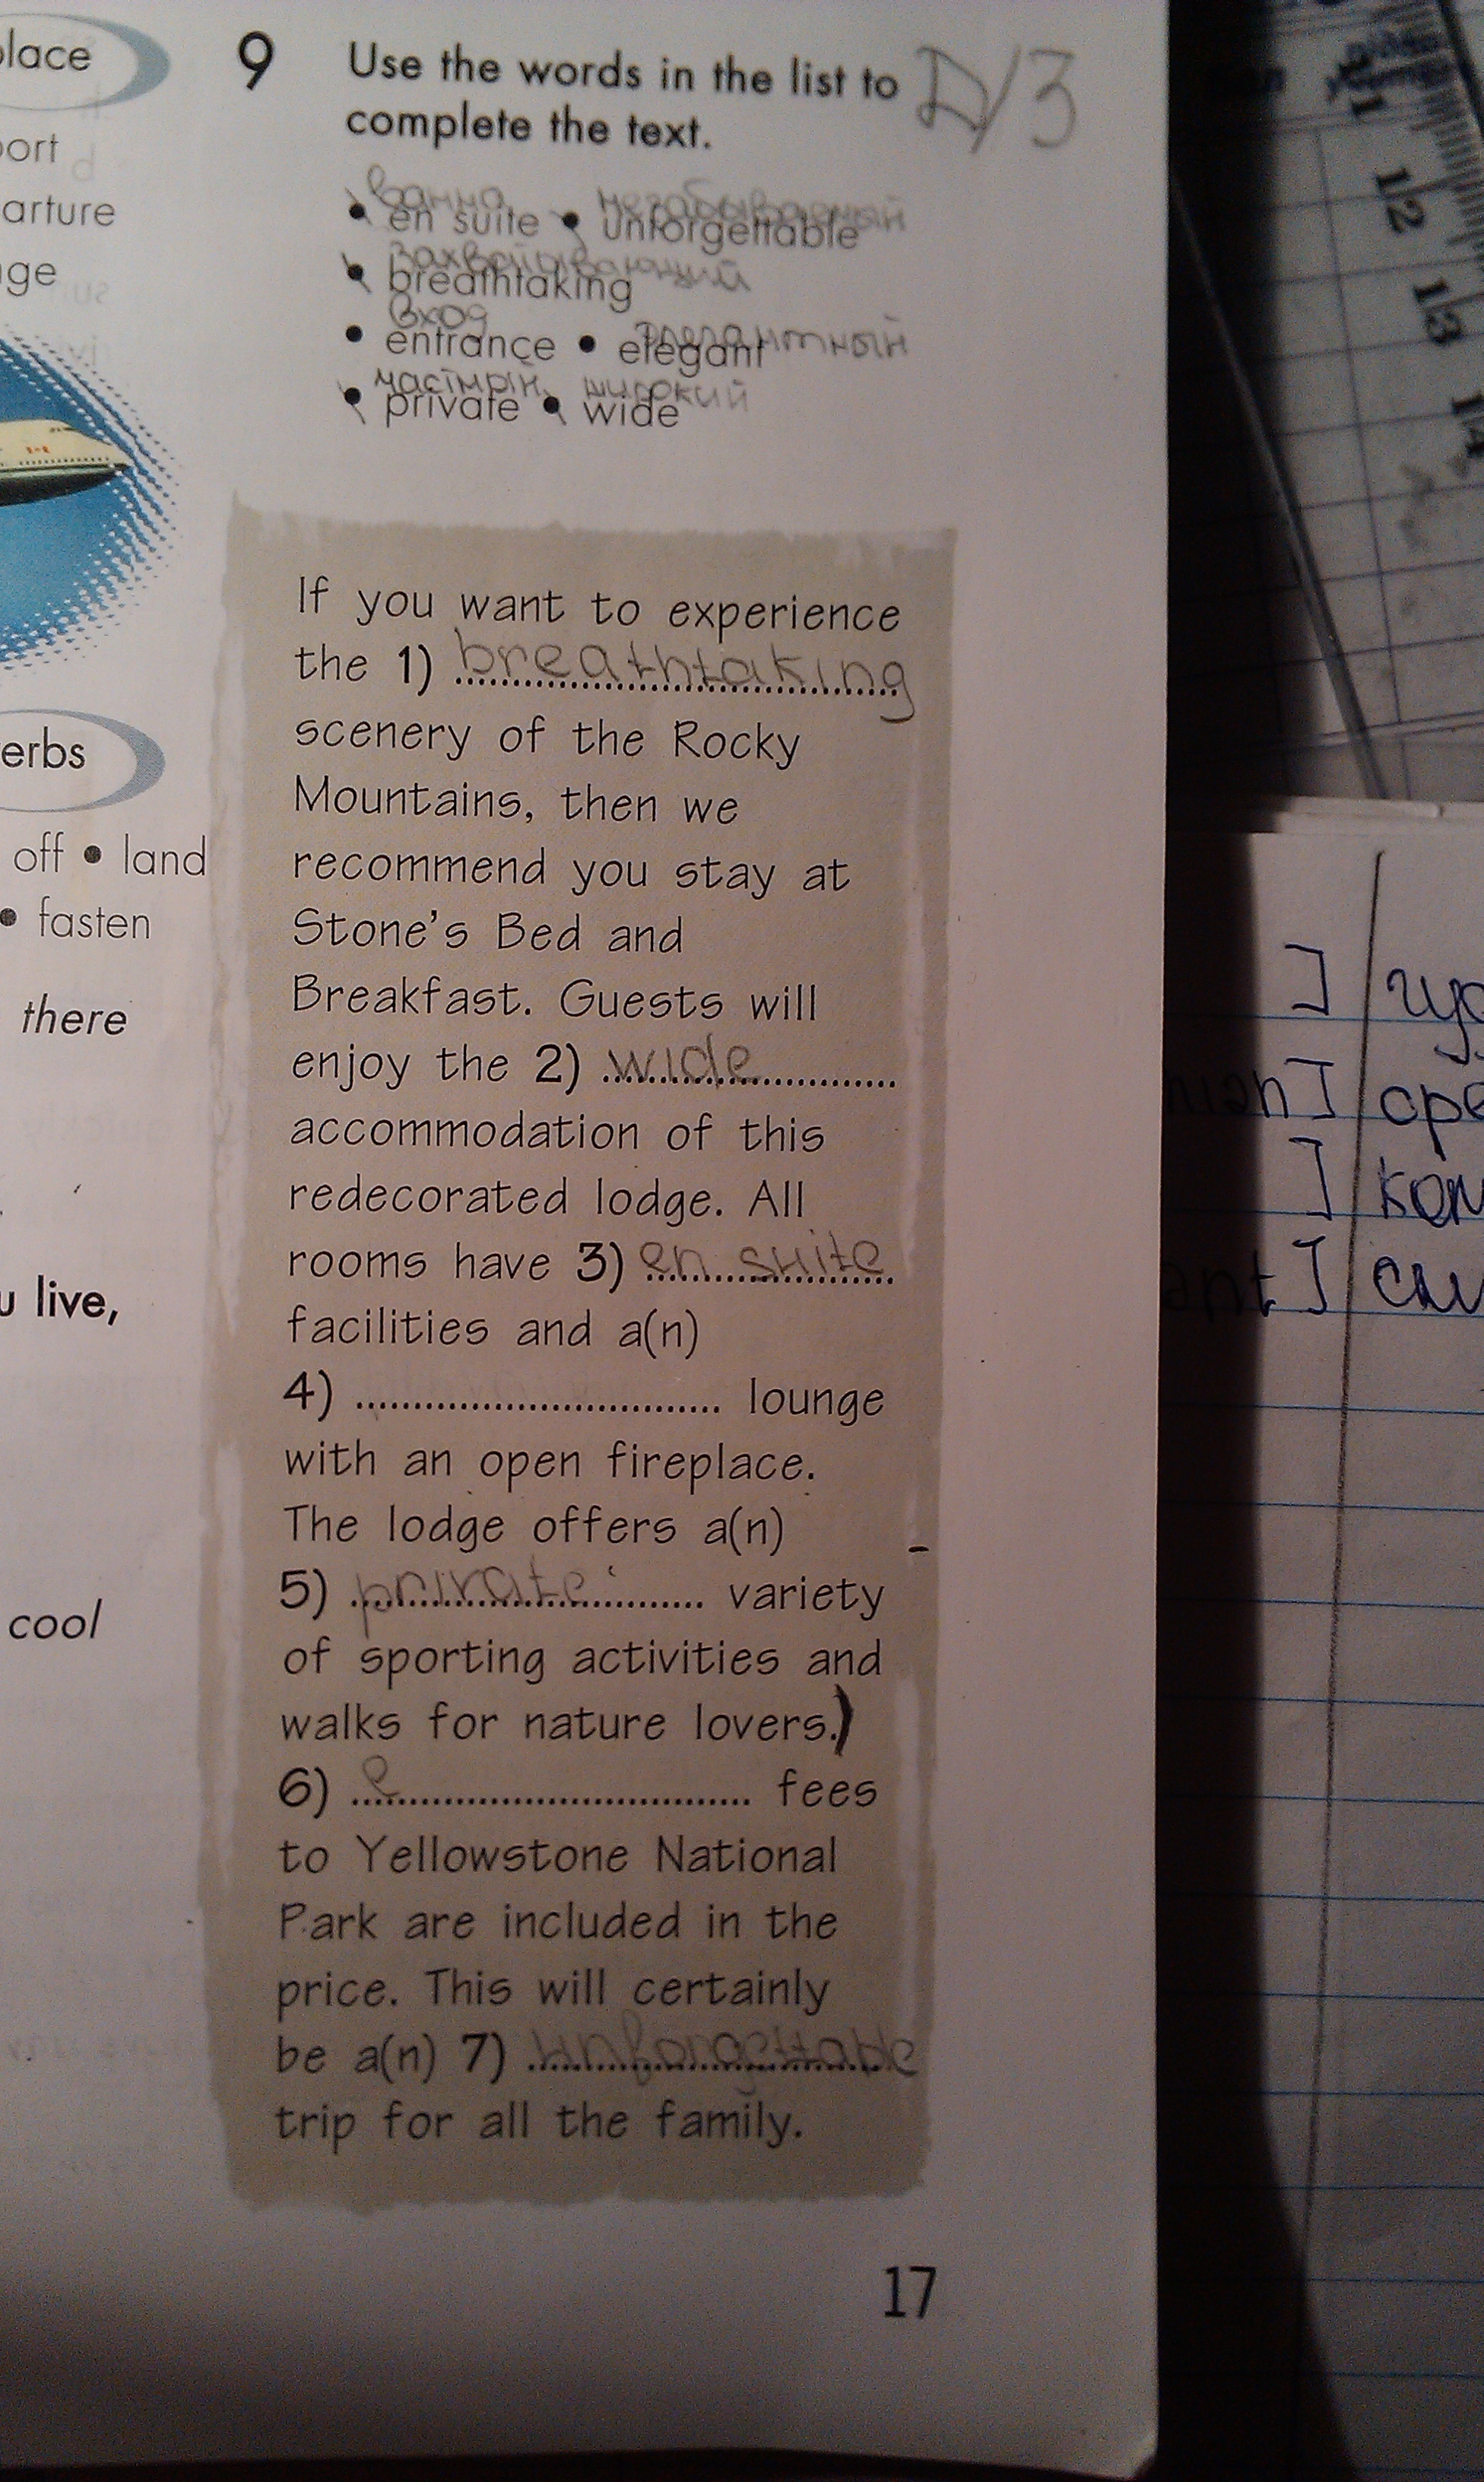 lace
ort
arture
ge
erbs
off • land
• fasten
there
u live,
cool
9 Use the words in the list to
complete the text.
Д/З
ванна незабываемый
• en suite • unforgettable
захватывающий
• breathtaking
вход элегантный
• entrance • elegant
частный широкий
• private • wide
If you want to experience
the 1) breathtaking
scenery of the Rocky
Mountains, then we
recommend you stay at
Stone's Bed and
Breakfast. Guests will
enjoy the 2) wide
accommodation of this
redecorated lodge. All
rooms have 3) en suite
facilities and a(n)
4) .......... lounge
with an open fireplace.
The lodge offers a(n)
5) private variety
of sporting activities and
walks for nature lovers.)
6) e.......... fees
to Yellowstone National
Park are included in the
price. This will certainly
be a(n) 7) unforgettable
trip for all the family.
17
11
12
13
14
]
] сре
] ком
ant]